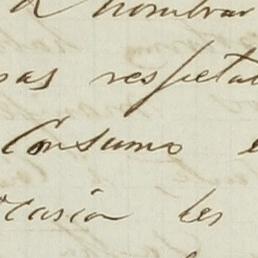 á nombrar
pas respeta
Consumo e
ocasión les